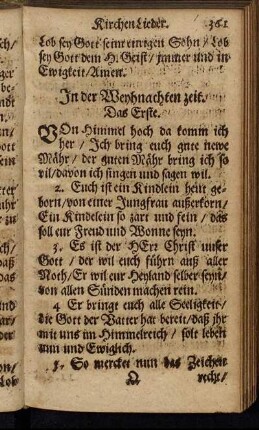 Kirchen Lieder. 361
Lob sey Gott seinr einigen Sohn / Lob
sey Gott dem H. Geist / jmmer und in
Ewigkeit / Amen.
In der Weyhnachten zeit.
Das Erste.
VOn Himmel hoch da komm ich
her / Jch bring euch gute newe
Mähr / der guten Mähr bring ich so
vil / davon ich singen und sagen wil.
2. Euch ist ein Kindlein heut ge-
born / von einer Jungfrau außerkorn /
Ein Kindelein so zart und fein / das
soll eur Freud und Wonne seyn.
3. Es ist der HErr Christ unser
Gott / der wil euch führn auß aller
Noth / Er wil eur Heyland selber seyn /
von allen Sünden machen rein.
4 Er bringt euch alle Seeligkeit /
die Gott der Vatter hat bereit / daß jhr
mit uns im Himmelreich / solt leben
nun und Ewiglich.
5. So mercket nun das Zeichen
Q recht /